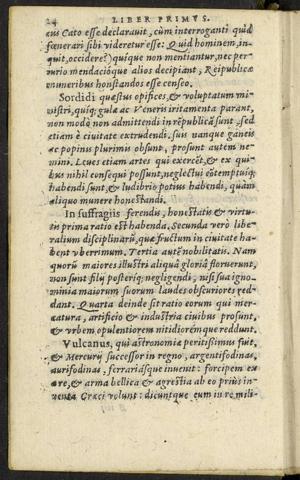 24 LIBER PRIMVS.
cus Cato esse declarauit, cùm interroganti quid
fœnerari sibi videretur esse: Quid hominem, in-
quit, occidere? quique non mentiantur, nec per-
iurio mendacióque alios decipiant, Reipublicæ
muneribus honestandos esse censeo.
Sordidi quæstus opifices, & voluptatum mi-
nistri, quiq; gulæ ac Veneris iritamenta parant,
non modò non admittendi in rēpublicā sunt, sed
etiam è ciuitate extrudendi, suis vanque ganeis
ac popinis plurimis obsunt, prosunt autem ne-
mini. Leues etiam artes qui exercēt, & ex qui-
bus nihil consequi possunt, neglectui cōtemptuiq;
habendi sunt, & ludibrio potius habendi, quàm
aliquo munere honestandi.
In suffragiis ferendis, honestatis & virtu-
tis prima ratio est habenda, Secunda verò libe-
ralium disciplinarū, quæ fructum in ciuitate ha-
bent vberrimum. Tertia autē nobilitatis. Nam
quorū maiores illustri aliqua gloriâ floruerunt,
non sunt filij posteriq; negligendi, nisi sua igno-
minia maiorum suorum laudes obscuriores red-
dant. Quarta deinde sit ratio eorum qui mer-
catura, artificio & industria ciuibus prosunt,
& vrbem opulentiorem nitidiorémque reddunt.
Vulcanus, qui astronomiæ peritissimus fuit,
& Mercurij successor in regno, argentifodinas,
aurifodinas, ferrariásque inuenit: forcipem ex
ære, & arma bellica & agrestia ab eo prius in-
uenta Græci volunt: dicuntque eum in re mili-